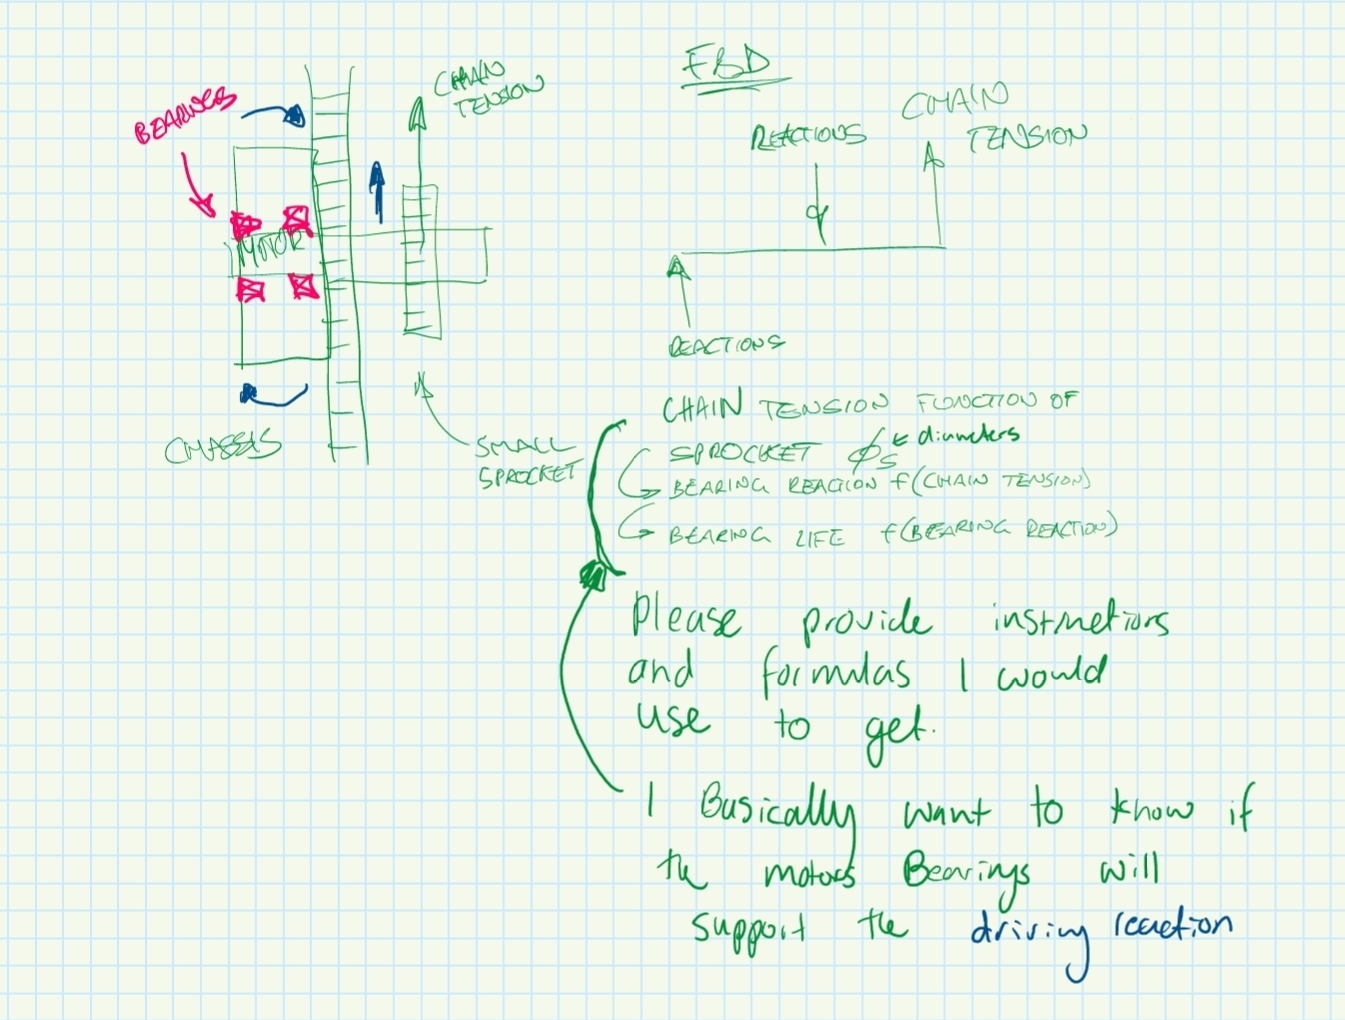 FBD
CHAIN
TENSION
BEARINGS
REACTIONS
CHAIN
TENSION
MOTOR
REACTIONS
CHASSIS
SMALL
SPROCKET
CHAIN TENSION FUNCTION OF
SPROCKET ϕs ← diameters
↳ BEARING REACTION f(CHAIN TENSION)
↳ BEARING LIFE f(BEARING REACTION)
Please provide instructions
and formulas I would
use to get.
I Basically want to know if
the motors Bearings will
support the driving reaction